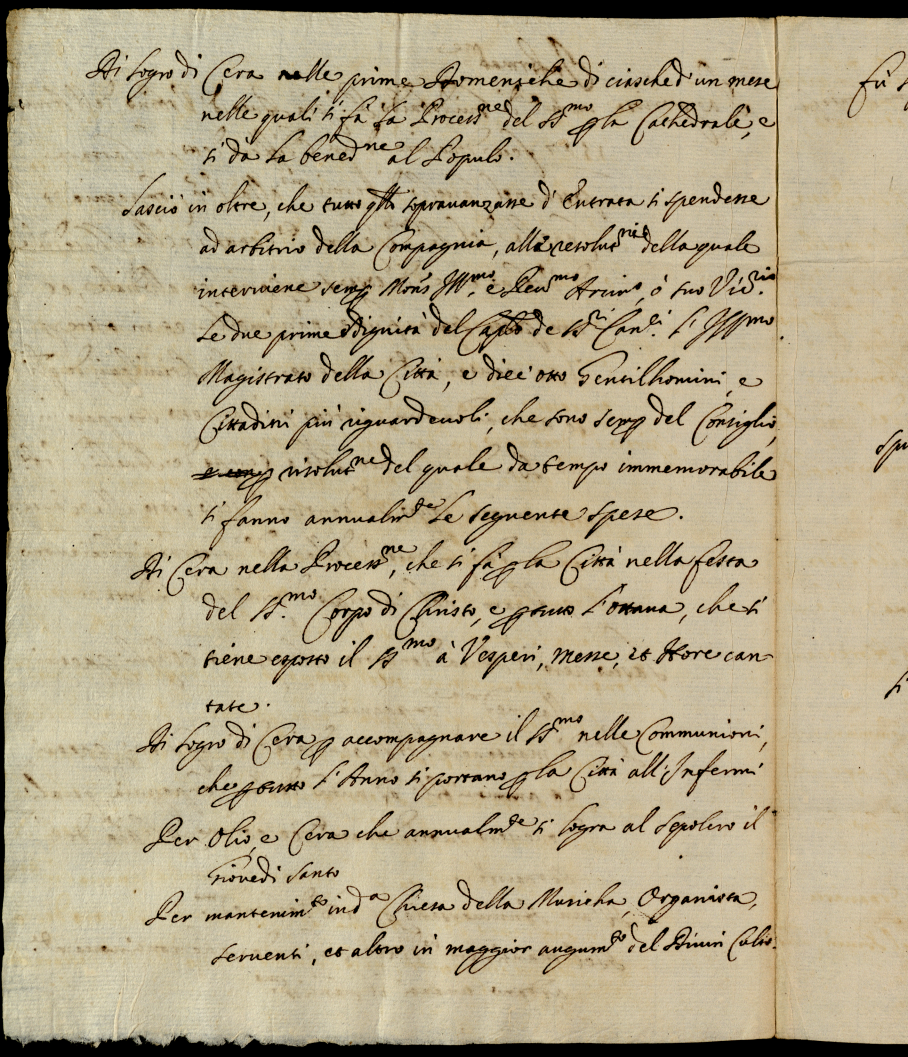 Di logro di Cera nelle prime Domeniche di ciasched'un mese
nelle quali si fà la Process.ne del SS.mo p la Cathedrale, e
si dà la bened.ne al Popolo.
Lasciò in oltre, che tutto qllo sopravanzasse d'Entrata si spendesse
ad arbitrio della Compagnia, alla resolut.ne della quale
interviene semp Mons.r Ill.mo, e Rev.mo Arciv.o, ò suo Vic.rio
Le due prime dignità del Caplo de SS.ri Can.ci l'Ill.mo
Magistrato della Città, e dieci otto Gentilhomini, e
Cittadini più riguardevoli, che sono semp del Consiglio,
risolut.ne del quale da tempo immemorabile
si fanno annualm.te le seguente spese.
Di Cera nella Process.ne, che si fà p la Città nella festa
del SS.mo Corpo di Christo, e p tutto l'ottava, che si
tiene esposto il SS.mo à Vesperi, messe, et Hore can-
tate.
Di logro di Cera p accompagnare il SS.mo nelle Communioni,
che p tutto l'Anno si portano p la Città all'Infermi
Per Olio, e Cera che annualm.te si logra al sepolcro il
Giovedi Santo
Per mantenim.to in d.a Chiesa della Musicha, Organista,
serventi, et altro in maggior augum.to del Divin Culto.
fù